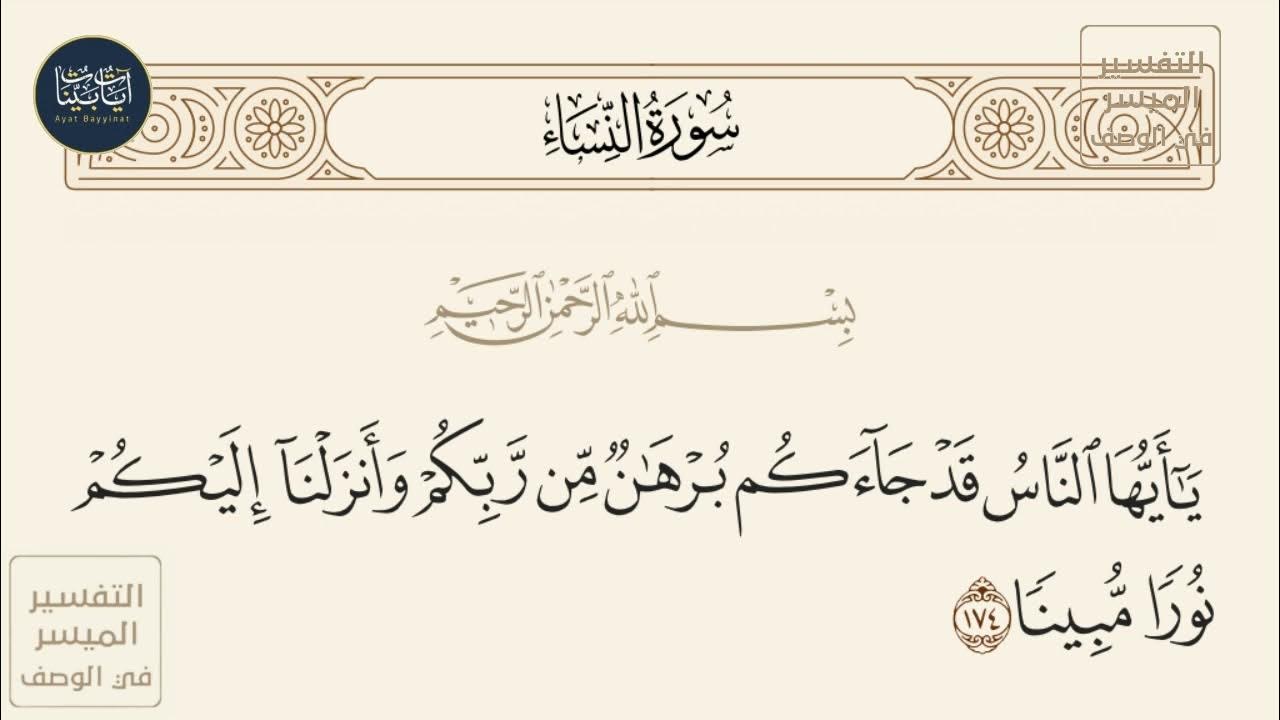 آيات بينات
Ayat Bayyinat
التفسير
الميسر
في الوصف
سُورَةُ النِّسَاءِ
بِسْمِ ٱللَّهِ ٱلرَّحْمَٰنِ ٱلرَّحِيمِ
يَـٰٓأَيُّهَا ٱلنَّاسُ قَدْ جَآءَكُم بُرْهَـٰنٌ مِّن رَّبِّكُمْ وَأَنزَلْنَآ إِلَيْكُمْ
نُورًا مُّبِينًا ١٧٤
التفسير
الميسر
في الوصف